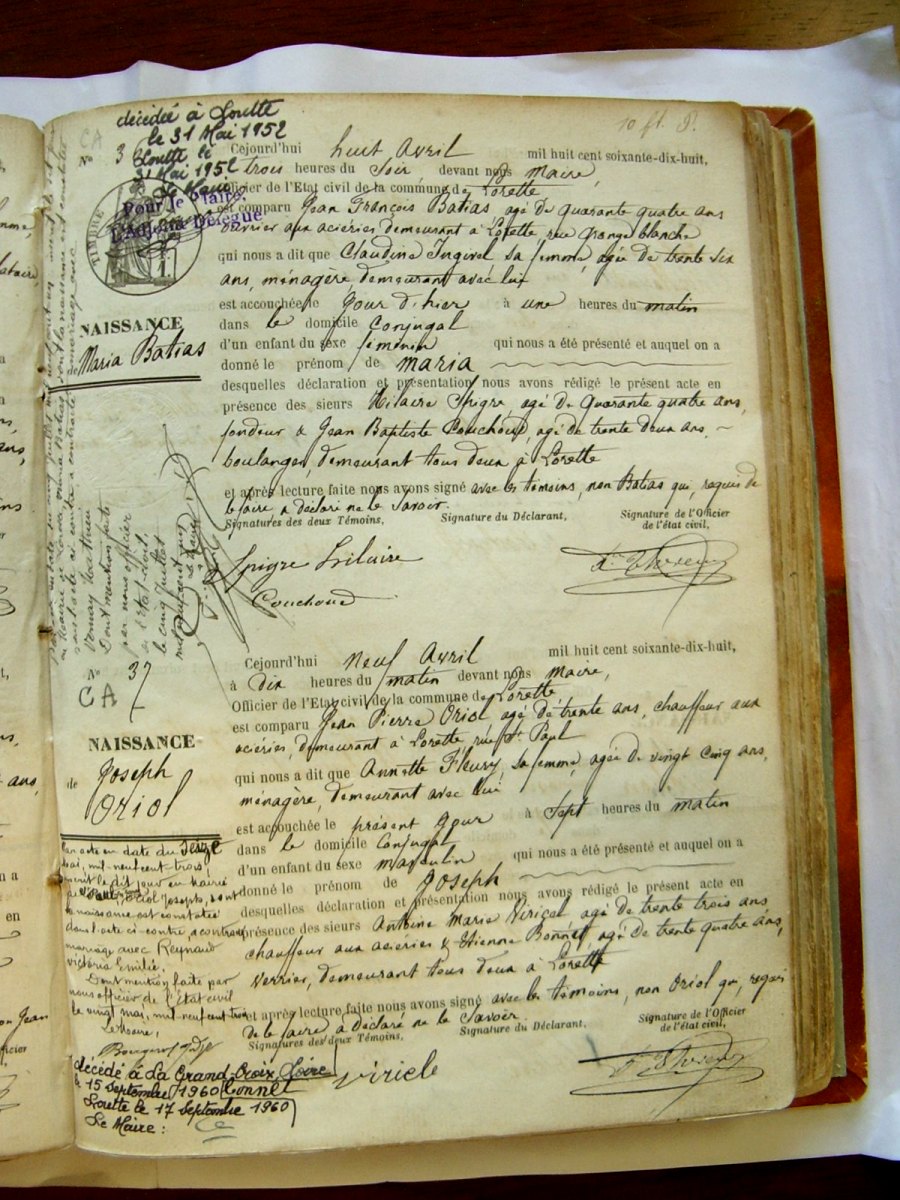 décédée à Lorette
le 31 Mai 1952
Lorette le
31 Mai 1952
Le Maire
Pour le Maire.
L'Adjoint Délégué
10 ft.
CA
N° 36
TIMBRE
NAISSANCE
de Maria Batias
Cejourd'hui huit Avril mil huit cent soixante-dix-huit,
trois heures du Soir, devant nous Maire,
Officier de l'Etat civil de la commune de Lorette
est comparu Jean François Batias agé de quarante quatre ans
ouvrier aux acieries demeurant à Lorette rue Grange blanche
qui nous a dit que Claudine Jugivel sa femme, agée de trente six
ans, ménagère, demeurant avec lui
est accouchée le jour d'hier à une heures du matin
dans le domicile Conjugal
d'un enfant du sexe féminin qui nous a été présenté et auquel on a
donné le prénom de maria
desquelles déclaration et présentation nous avons rédigé le présent acte en
présence des sieurs Hilaire Spigre agé de quarante quatre ans,
fondeur & Jean Baptiste Couchoud, agé de trente deux ans,
boulanger, demeurant tous deux à Lorette
et après lecture faite nous avons signé avec les témoins, non Batias qui, requis de
le faire a déclaré ne le Savoir.
Signatures des deux Témoins, Signature du Déclarant, Signature de l'Officier
de l'état civil,
Spigre hilaire
Couchoud
Dont mention faite
par nous officier
de l'état civil.
le cinq juillet
N° 37
CA
NAISSANCE
de Joseph
Oriol
Cejourd'hui Neuf Avril mil huit cent soixante-dix-huit,
à Dix heures du matin devant nous Maire,
Officier de l'Etat civil de la commune de Lorette
est comparu Jean Pierre Oriol agé de trente ans, chauffeur aux
aciéries, demeurant à Lorette rue St Paul
qui nous a dit que Annette Fleury, sa femme, agée de vingt cinq ans,
ménagère, demeurant avec lui
est accouchée le présent jour à Sept heures du matin
dans le domicile Conjugal
d'un enfant du sexe masculin qui nous a été présenté et auquel on a
donné le prénom de Joseph
desquelles déclaration et présentation nous avons rédigé le présent acte en
présence des sieurs Antoine Marie Viricel agé de trente trois ans
chauffeur aux acieries & Etienne Bonnet, agé de trente quatre ans,
verrier, demeurant tous deux à Lorette
et après lecture faite nous avons signé avec les témoins, non Oriol qui, requis
de le faire a déclaré ne le Savoir.
Signatures des deux Témoins, Signature du Déclarant, Signature de l'Officier
de l'état civil,
Viricle
Bonnet
Par acte en date du Seize
mai, mil-neuf cent trois,
inscrit le dit jour en mairie
de St Paul Oriol Joseph, dont
la naissance est constatée
dans l'acte ci-contre, a contracté
mariage avec Reynaud
Victoria Emilie.
Dont mention faite par
nous officier de l'état civil
le vingt mai, mil-neuf cent trois
Le Maire,
décédé à La Grand-Croix, Loire
le 15 Septembre 1960
Lorette le 17 Septembre 1960
Le Maire :